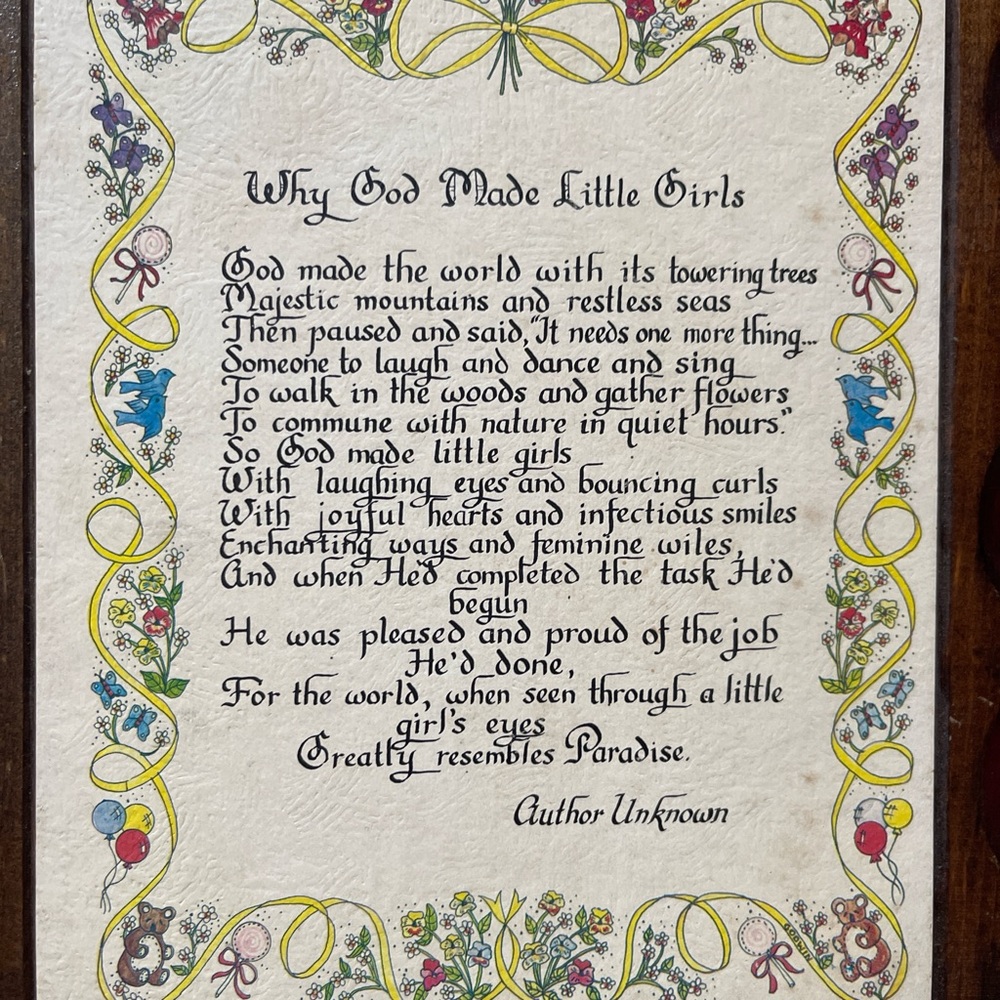 Why God Made Little Girls
God made the world with its towering trees
Majestic mountains and restless seas
Then paused and said, "It needs one more thing...
Someone to laugh and dance and sing
To walk in the woods and gather flowers
To commune with nature in quiet hours."
So God made little girls
With laughing eyes and bouncing curls
With joyful hearts and infectious smiles
Enchanting ways and feminine wiles,
And when He'd completed the task He'd
begun
He was pleased and proud of the job
He'd done,
For the world, when seen through a little
girl's eyes
Greatly resembles Paradise.
Author Unknown